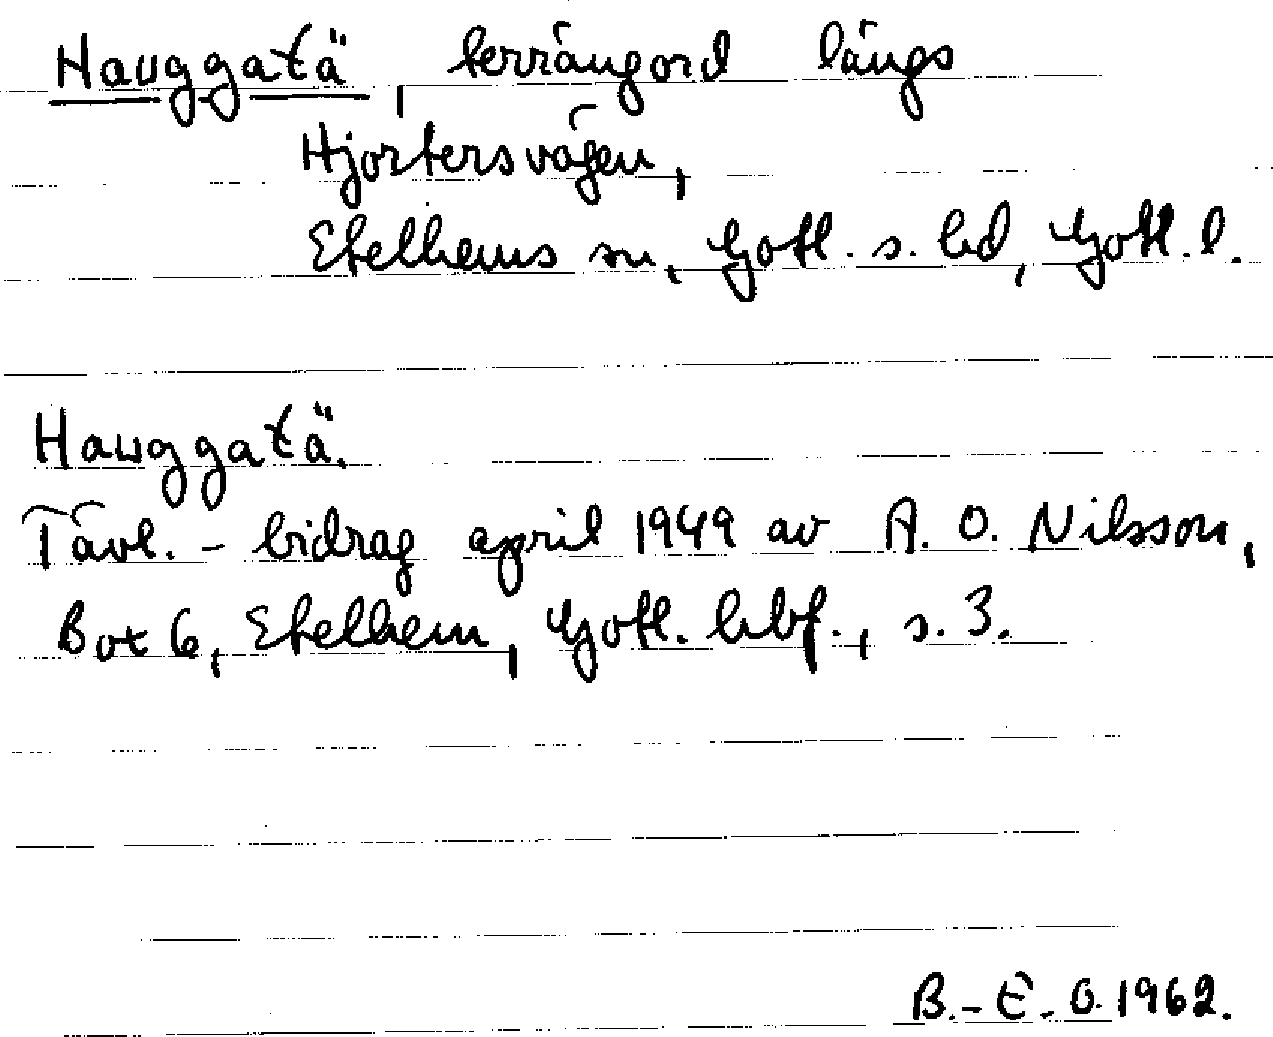 Hauggatä, terrängord längs
Hjortersvägen,
Etelhems sn, Gotl. s. hd, Gotl. l.
Hauggatä.
Tävl.-bidrag april 1949 av A. O. Nilsson,
Box 6, Etelhem, Gotl. hbf., s. 3.
B.-E. O. 1962.